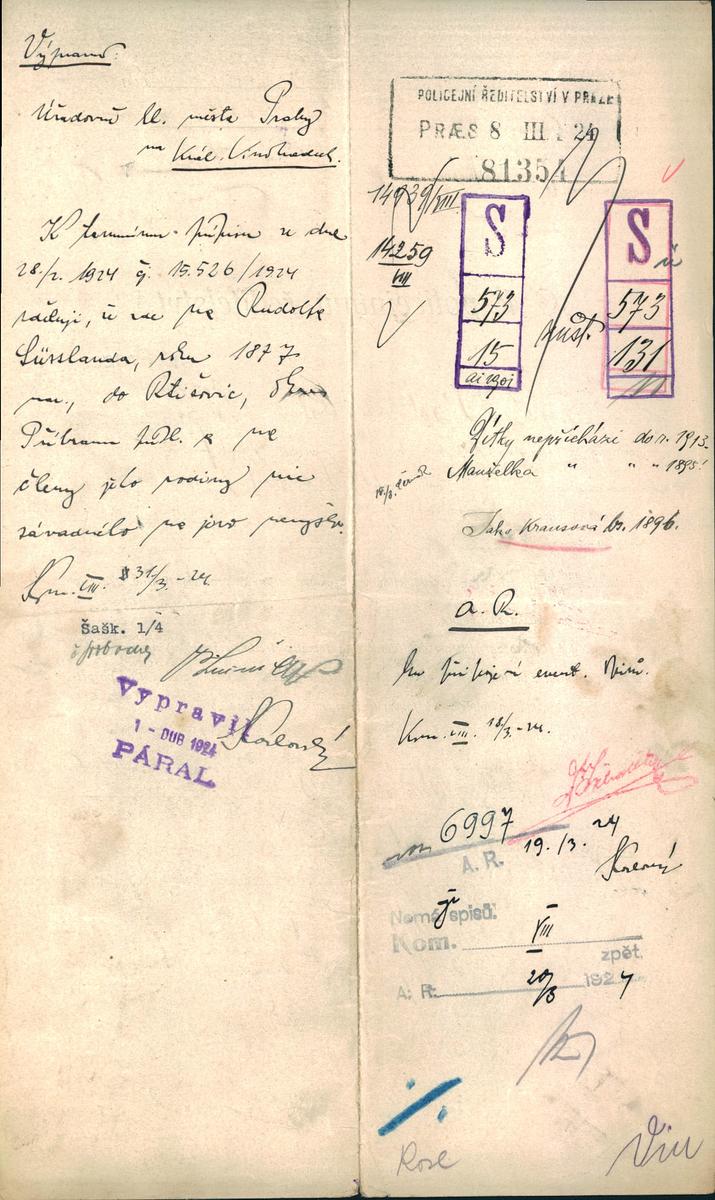 Úřadovně hl. města Prahy
na Král. Vinohradech.
K tamnímu přípisu ze dne
28./2. 1924 čj. 15.526/1924
sděluji, že zde na Rudolfa
Süsslanda, roku 1877
nar., do Rtišovic, okres
Příbram přísl. a na
členy jeho rodiny nic
závadného na jevo nevyšlo.
Kom. VIII. 31/3. - 24.
Šašk. 1/4
Vypravil
1 - DUB 1924
PÁRAL
POLICEJNÍ ŘEDITELSTVÍ V PRAZE
PRÆS 8 III 24
81354
14939/VIII
14259
VIII
S
573
15
S
573
131
Dítky nepřichází do r. 1913.
Manželka " " " 1895!
Jako Krausová 1896.
A. R.
event.
Kom. VIII. 18/3. - 24.
6997
19. /3. 24
A. R.
Nemá spisů.
Kom. VIII
zpět.
A. R. 20/3 1924